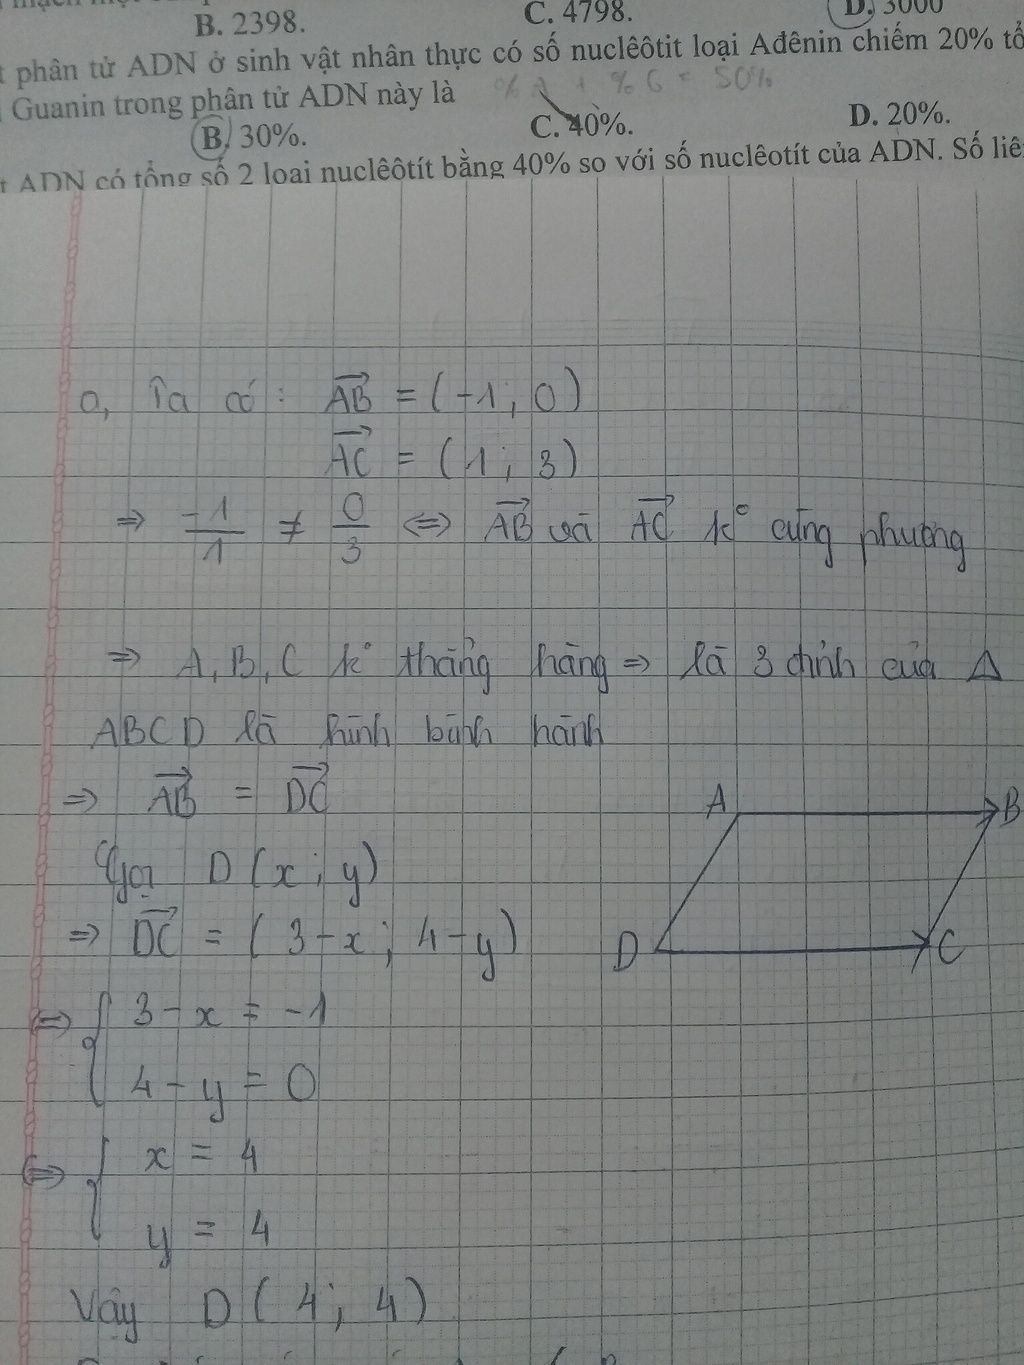 B. 2398. C. 4798. D. 3000
phân tử ADN ở sinh vật nhân thực có số nuclêôtit loại Ađênin chiếm 20% tổ
Guanin trong phân tử ADN này là % A + % G = 50%
B. 30%. C. 40%. D. 20%.
ADN có tổng số 2 loại nuclêôtít bằng 40% so với số nuclêotít của ADN. Số liê
a, Ta có : AB = (-1; 0)
AC = (1; 3)
⇒ -1/1 ≠ 0/3 ⇔ AB và AC k° cùng phương
⇒ A, B, C k° thẳng hàng ⇒ là 3 đỉnh của Δ
ABCD là hình bình hành
⇒ AB = DC
A B
Gọi D (x; y)
⇒ DC = (3-x; 4-y)
D C
⇔ { 3 - x = -1
4 - y = 0
⇔ { x = 4
y = 4
Vậy D (4; 4)